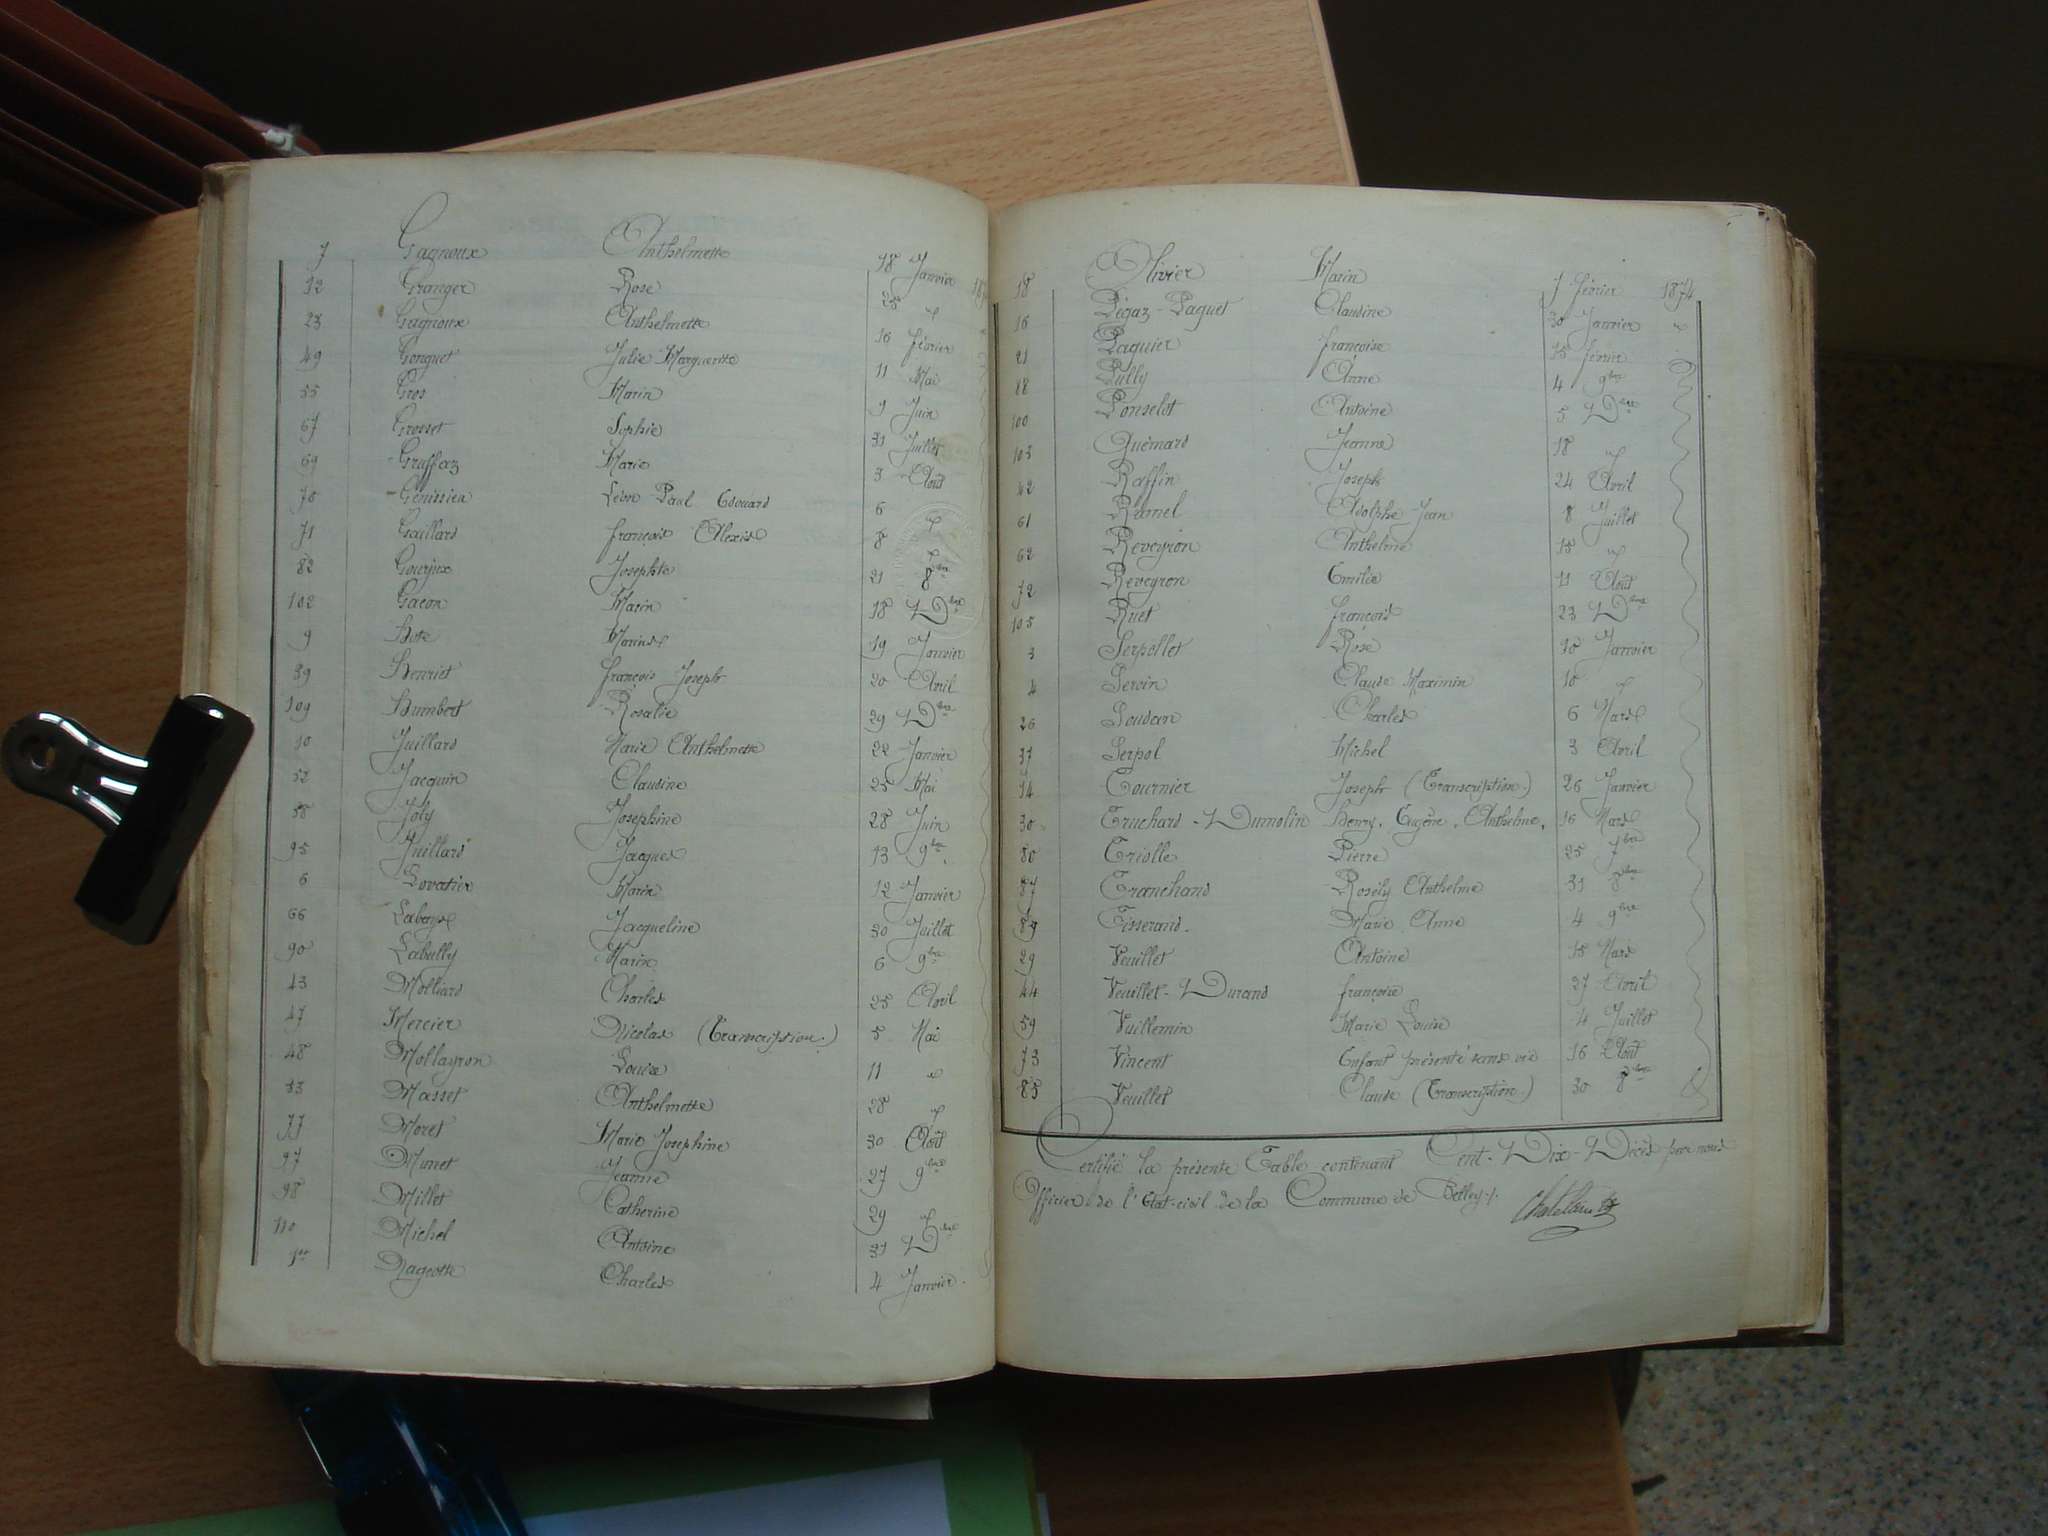 7 Gagnoux Anthelmette 18 Janvier
12 Granger Rose 25 "
23 Gagnoux Anthelmette 16 février
49 Gonguet Julie Marguerite 11 Mai
55 Gros Marin 9 Juin
67 Grosset Sophie 31 Juillet
69 Gruffaz Marie 3 Août
70 Génissieu Léon Paul Edouard 6 "
71 Gaillard françois Alexis 8 "
82 Gourjux Josephte 21 8bre
102 Gacon Marin 18 Dbre
9 Marius 19 Janvier
39 Henriet françois Joseph 20 Avril
109 Humbert Rosalie 29 Dbre
10 Juillard Marie Anthelmette 22 Janvier
52 Jacquin Claudine 25 Mai
58 Joly Josephine 28 Juin
95 Juillard Jacques 13 9bre
6 Lovatier Marin 12 Janvier
66 Jacqueline 30 Juillet
90 Labully Marin 6 9bre
43 Molliard Charles 25 Avril
47 Mercier Nicolas (Transcription.) 5 Mai
48 Mollayron Louise 11 "
53 Masset Anthelmette 28 "
77 Moret Marie Josephine 30 Août
97 Munet Jeanne 27 9bre
98 Millet Catherine 29 "
110 Michel Antoine 31 Dbre
1er Nageotte Charles 4 Janvier.
18 Olivier Marin 7 février 1874
16 Pégaz-Paquet Claudine 30 Janvier "
21 Paquier françoise 15 février
88 Pully Anne 4 9bre
100 Ponselot Antoine 5 Dbre
103 Quémard Jeanne 18 "
42 Raffin Joseph 24 Avril
61 Adolphe Jean 8 Juillet
62 Reveyron Anthelme 15 "
72 Reveyron Emilie 11 Août
105 Ruet françois 23 Dbre
3 Serpollet Rose 10 Janvier
4 Servin Claude Maximin 10 "
26 Soudan Charles 6 Mars
37 Serpol Michel 3 Avril
14 Tournier Joseph (Transcription.) 26 Janvier
30 Truchard-Dumolin Henry, Eugène, Anthelme, 16 Mars
80 Triolle Pierre 25 7bre
87 Tranchand Rosély Anthelme 31 8bre
89 Tisserand. Marie Anne 4 9bre
29 Veuillet Antoine 15 Mars
44 Veuillet-Durand françoise 27 Avril
59 Vuillermin Marie Louise 4 Juillet
73 Vincent Enfant présenté sans vie 16 Août
85 Veuillet Claude (Transcription.) 30 8bre
Certifié la présente Table contenant Cent-Dix-Décès par nous
Officier de l'Etat-civil de la Commune de Belley./.